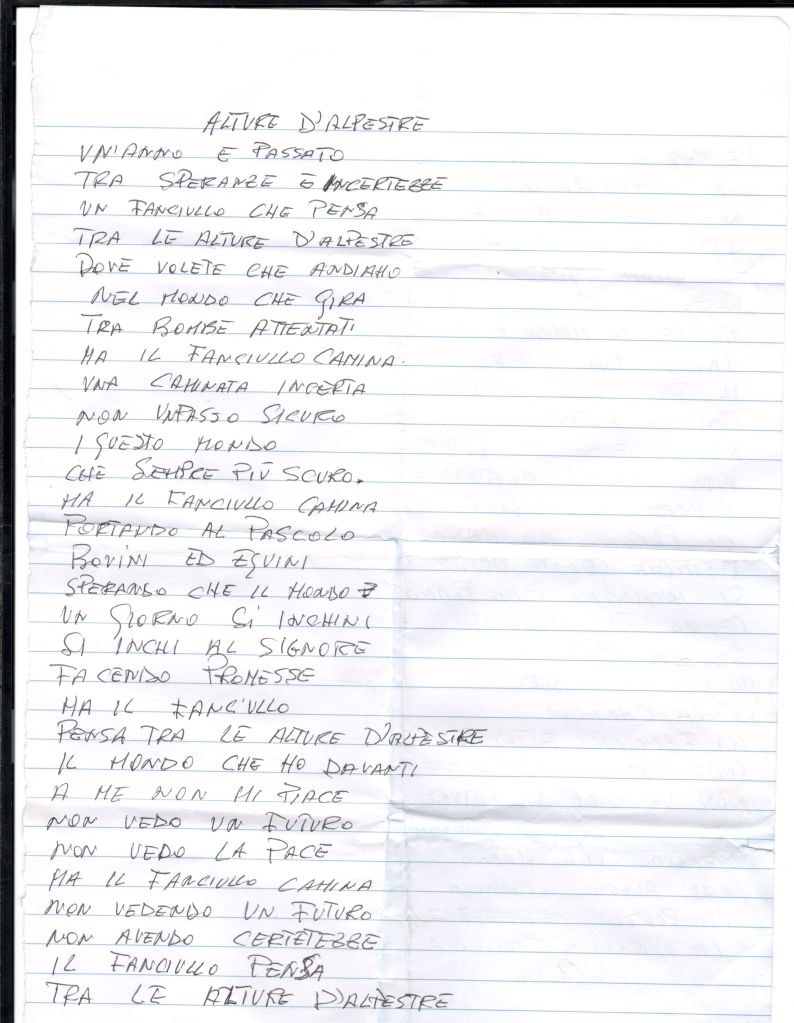 ALTURE D'ALPESTRE
UN'ANNO E PASSATO
TRA SPERANZE E INCERTEZZE
UN FANCIULLO CHE PENSA
TRA LE ALTURE D'ALPESTRE
DOVE VOLETE CHE ANDIAMO
NEL MONDO CHE GIRA
TRA BOMBE ATTENTATI
MA IL FANCIULLO CAMINA.
UNA CAMINATA INCERTA
NON UNPASSO SICURO
I QUESTO MONDO
CHE SEMPRE PIÙ SCURO.
MA IL FANCIULLO CAMINA
PORTANDO AL PASCOLO
BOVINI ED EQUINI
SPERANDO CHE IL MONDO
UN GIORNO SI INCHINI
SI INCHI AL SIGNORE
FACENDO PROMESSE
MA IL FANCIULLO
PENSA TRA LE ALTURE D'ALPESTRE
IL MONDO CHE HO DAVANTI
A ME NON MI PIACE
NON VEDO UN FUTURO
NON VEDO LA PACE
MA IL FANCIULLO CAMINA
NON VEDENDO UN FUTURO
NON AVENDO CERTETEZZE
IL FANCIULLO PENSA
TRA LE ALTURE D'ALPESTRE